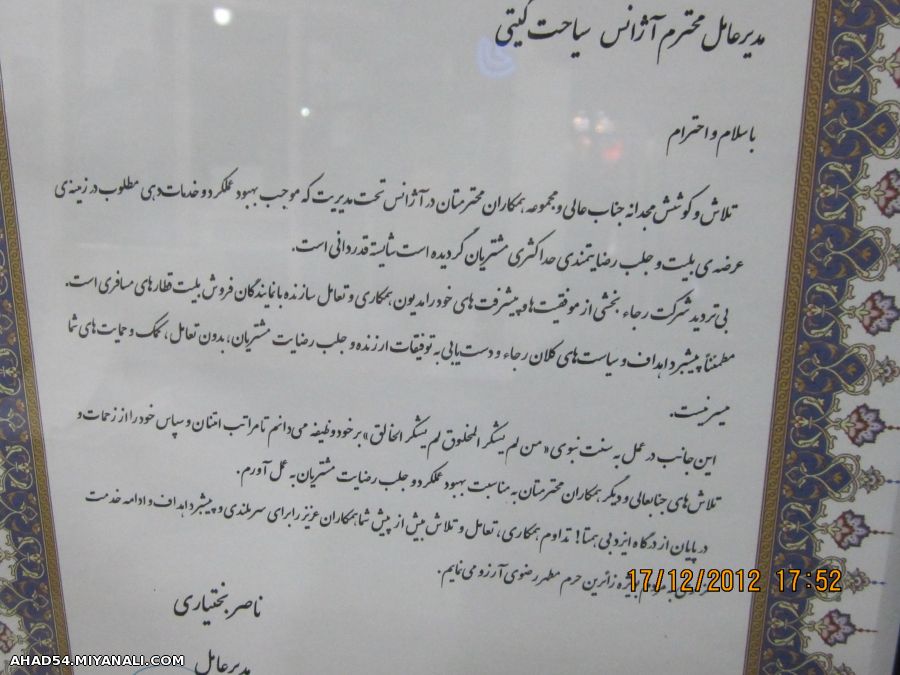 مدیرعامل محترم آژانس سیاحت گیتی
باسلام و احترام
تلاش و کوشش مجدانه جناب عالی و مجموعه همکاران محترمتان در آژانس تحت مدیریت که موجب بهبود عملکرد و خدمات دهی مطلوب در زمینه‌ی
عرضه‌ی بلیت و جلب رضایتمندی حداکثری مشتریان گردیده است شایسته قدردانی است.
بی‌تردید شرکت رجاء بخشی از موفقیت‌ها و پیشرفت‌های خود را مدیون همکاری و تعامل سازنده با نمایندگان فروش بلیت قطارهای مسافری است.
مطمئناً پیشبرد اهداف و سیاست‌های کلان رجاء و دست‌یابی به توفیقات ارزنده و جلب رضایت مشتریان، بدون تعامل، کمک و حمایت‌های شما
میسر نیست.
این جانب در عمل به سنت نبوی «من لم یشکر المخلوق لم یشکر الخالق» بر خود وظیفه می‌دانم تا مراتب امتنان و سپاس خود را از زحمات و
تلاش‌های جنابعالی و دیگر همکاران محترمتان به مناسبت بهبود عملکرد و جلب رضایت مشتریان به عمل آورم.
در پایان از درگاه ایزد بی همتا! تداوم همکاری، تعامل و تلاش بیش از پیش شما همکاران عزیز را برای سربلندی و پیشبرد اهداف و ادامه خدمت
به مردم بویژه زائرین حرم مطهر رضوی آرزو می‌نمایم.
17/12/2012 17:52
ناصر بختیاری
مدیرعامل
AHAD54.MIYANALI.COM